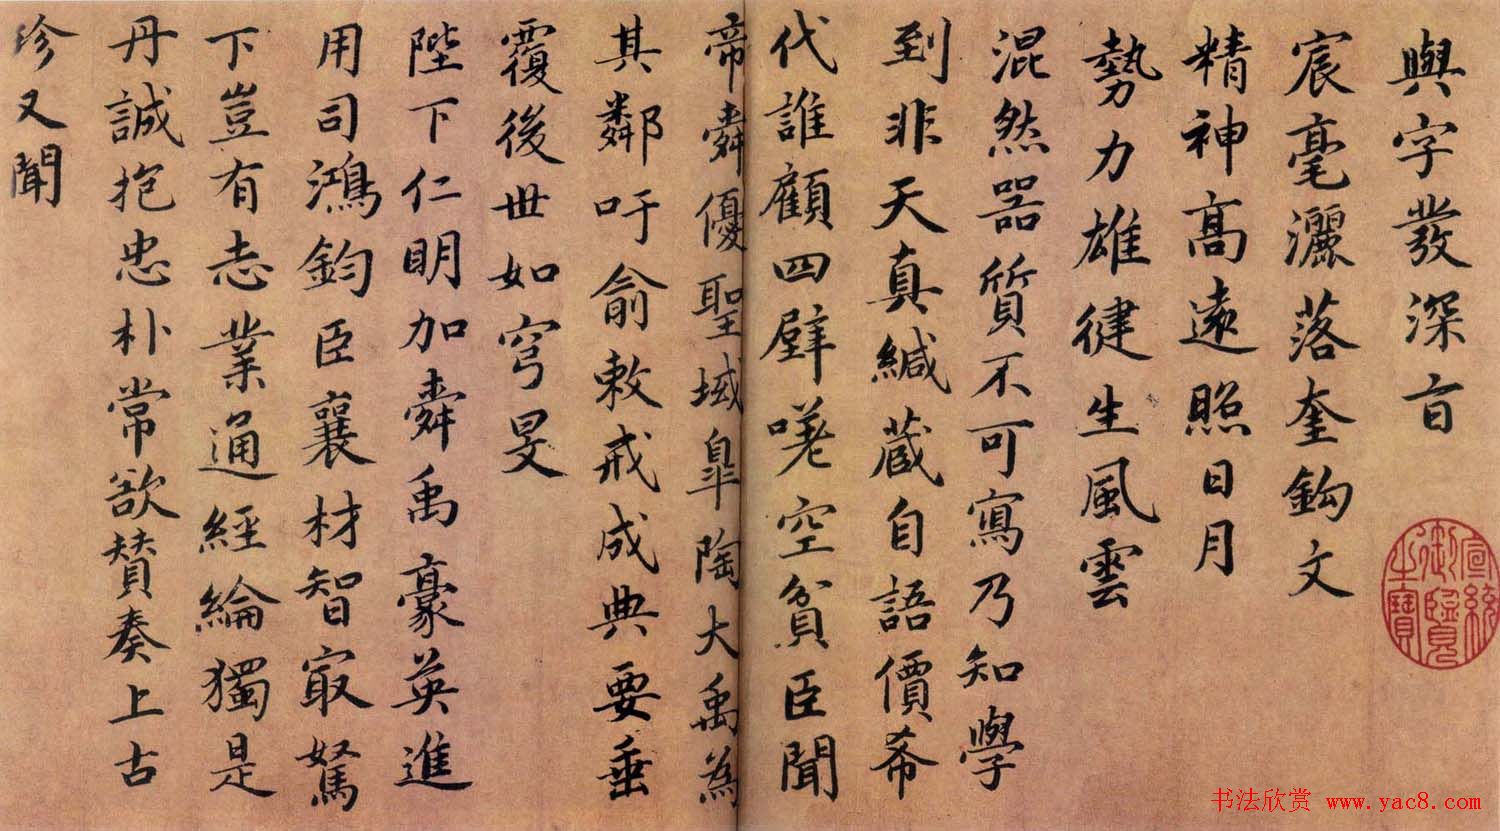 與字發深旨
宸毫灑落奎鈎文
精神高遠照日月
勢力雄健生風雲
混然器質不可寫乃知學
到非天真緘藏自語價希
代誰顧四壁嗟空貧臣聞
帝舜優聖域皐陶大禹為
其鄰吁俞敕戒成典要垂
覆後世如穹旻
陛下仁明加舜禹豪英進
用司鴻鈞臣襄材智最駑
下豈有志業通經綸獨是
丹誠抱忠朴常欲贊奏上古
珍又聞
宣統御覽之寶
书法欣赏 www.yac8.com